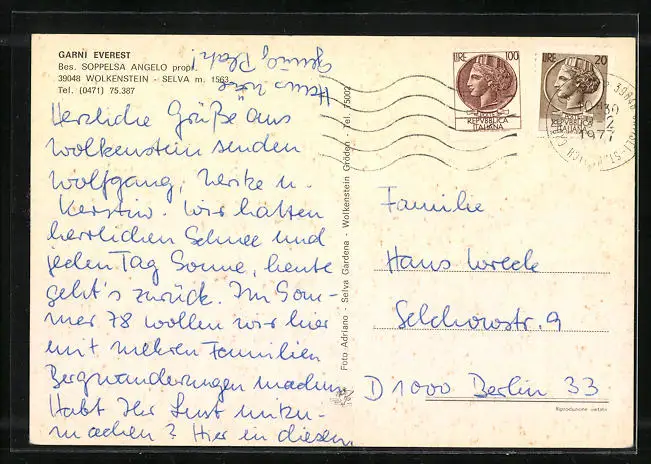 GARNI EVEREST
Bes. SOPPELSA ANGELO propr.
39048 WOLKENSTEIN - SELVA m. 1563
Tel. (0471) 75.387
Herzliche Grüße aus
Wolkenstein senden
Wolfgang, Heike u.
Kerstin. Wir hatten
herrlichen Schnee und
jeden Tag Sonne, heute
geht's zurück. Im Som-
mer 78 wollen wir hier
mit mehren Familien
Bergwanderungen machen
Habt Ihr Lust mitzu-
machen? Hier in diesem
Haus wäre
genug Platz!
Foto Adriano - Selva Gardena - Wolkenstein Gröden - Tel. 75002
LIRE 100
REPVBBLICA
ITALIANA
LIRE 20
REPVBBLICA
ITALIANA
1977
Familie
Hans Wrede
Selchowstr. 9
D 1000 Berlin 33
Riproduzione vietata